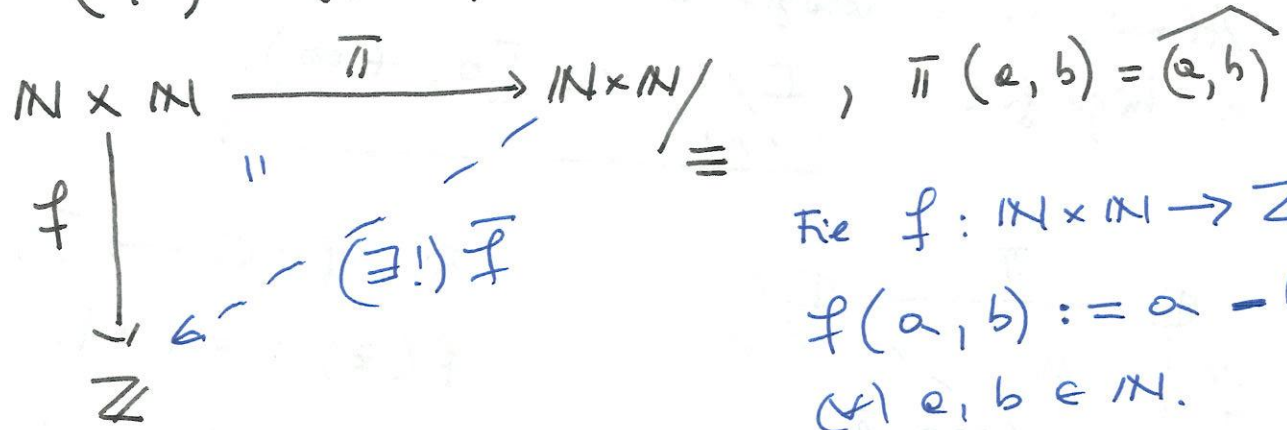 ℕ × ℕ π ℕ×ℕ/≡ , π (a, b) = \widehat{(a, b)}
f " (∃!) f̄
Fie f : ℕ × ℕ → ℤ
f(a, b) := a -
(∀) a, b ∈ ℕ.
ℤ